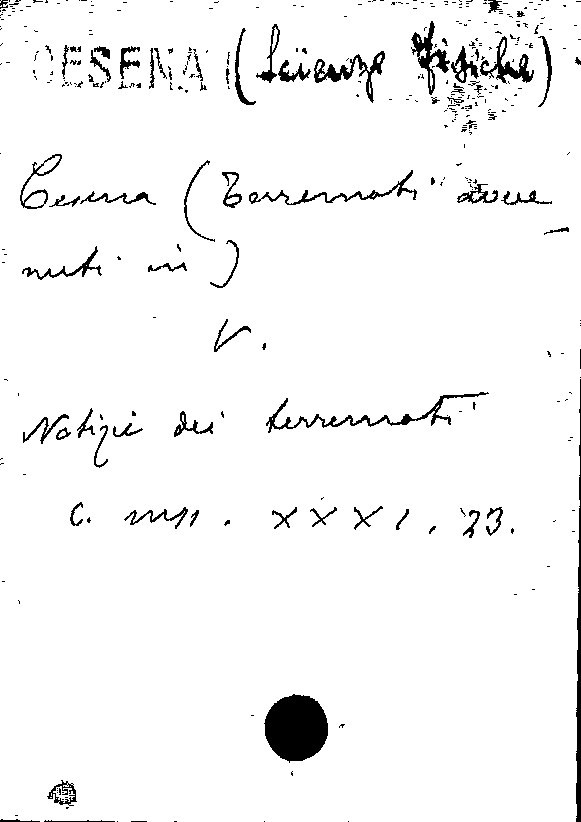 CESENA (Scienze Fisiche)
Cesena (Terremoti avve
nuti in)
V.
Notizie dei terremoti
C. mss. XXXI. 23.